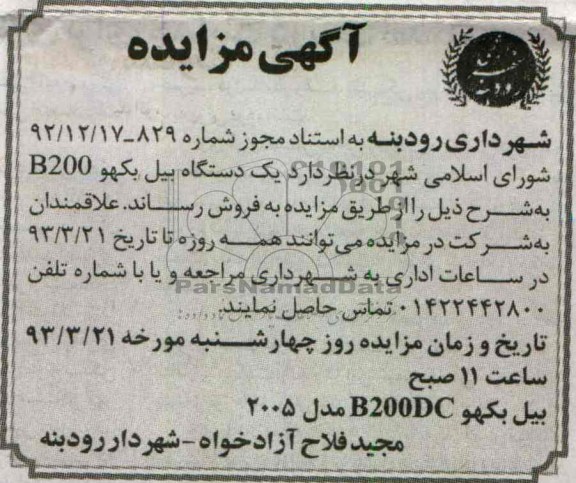 آگهی مزایده
شهرداری رودبنه به استناد مجوز شماره ۸۲۹-۹۲/۱۲/۱۷
شورای اسلامی شهر درنظردارد یک دستگاه بیل بکهو B200
به‌شرح ذیل را از طریق مزایده به فروش رساند. علاقمندان
به‌شرکت در مزایده می‌توانند همه روزه تا تاریخ ۹۳/۳/۲۱
در ساعات اداری به شهرداری مراجعه و یا با شماره تلفن
۰۱۴۲۲۴۴۲۸۰۰ تماس حاصل نمایند.
ParsNamadData
تاریخ و زمان مزایده روز چهارشنبه مورخه ۹۳/۳/۲۱
ساعت ۱۱ صبح
بیل بکهو B200DC مدل ۲۰۰۵
مجید فلاح آزادخواه - شهردار رودبنه